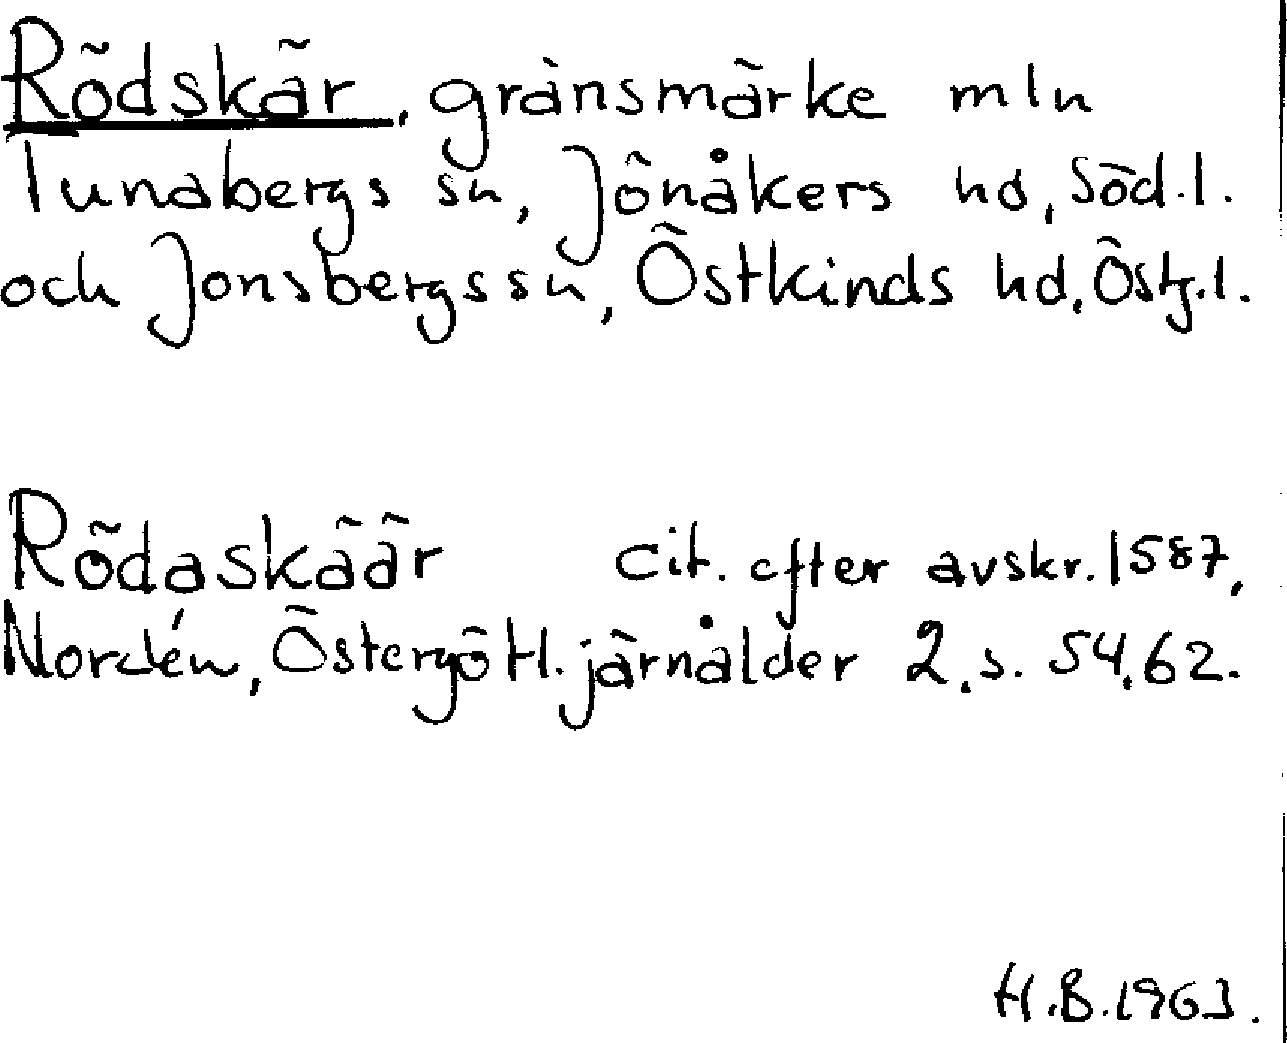 Rödskär, gränsmärke mln
Tunabergs sn, Jönåkers hd, Söd.l.
och Jonsbergs sn, Östkinds hd, Östg.l.
Rödaskäär cit. efter avskr. 1587,
Nordén, Östergötl. järnålder 2, s. 54, 62.
H.B. 1963.